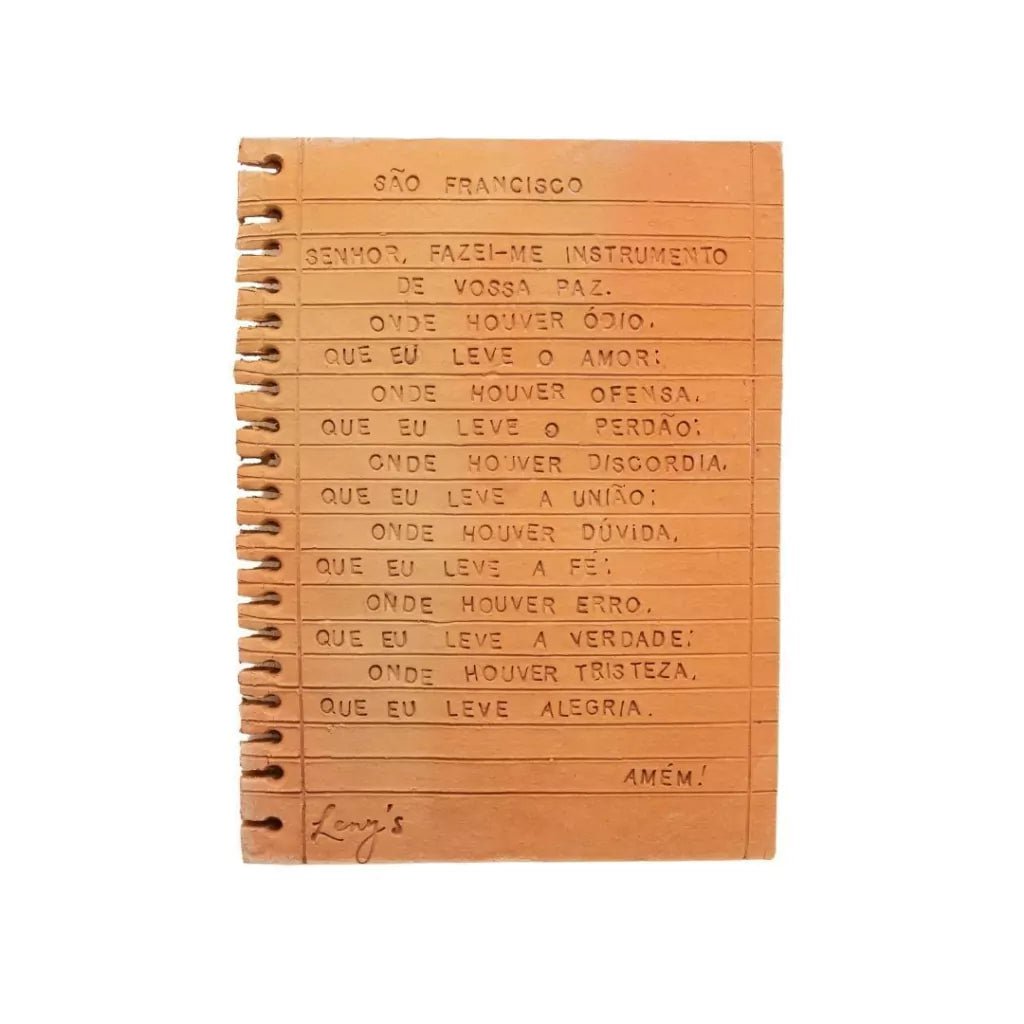 SÃO FRANCISCO
SENHOR, FAZEI-ME INSTRUMENTO
DE VOSSA PAZ.
ONDE HOUVER ÓDIO,
QUE EU LEVE O AMOR;
ONDE HOUVER OFENSA,
QUE EU LEVE O PERDÃO;
ONDE HOUVER DISCORDIA,
QUE EU LEVE A UNIÃO;
ONDE HOUVER DÚVIDA,
QUE EU LEVE A FÉ;
ONDE HOUVER ERRO,
QUE EU LEVE A VERDADE;
ONDE HOUVER TRISTEZA,
QUE EU LEVE ALEGRIA.
AMÉM!
Leny's